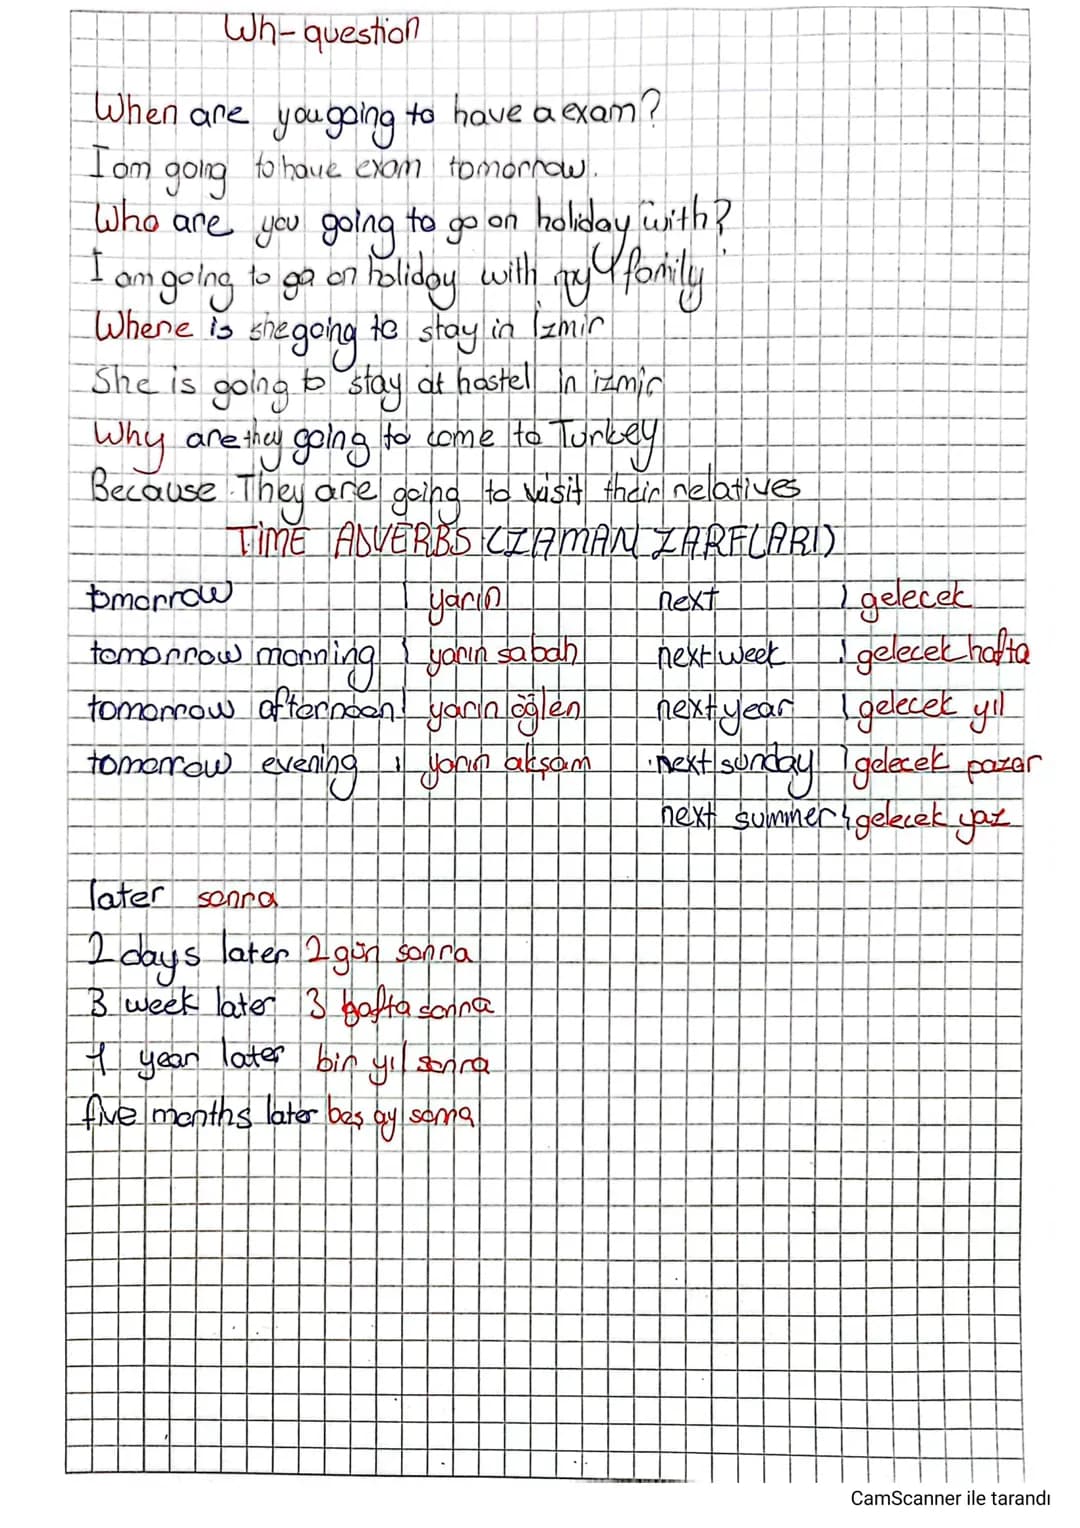 Wh-question
When are you going to have a exam?
I am going to have exam tomorrow.
Who are you going to go on holiday with?
I am going to go on holiday with my family
Where is she going to stay in İzmir
She is going to stay at hostel in izmir
Why are they going to come to Turkey
Because They are going to visit their relatives
TİME ADVERBS (ZAMAN ZARFLARI)
tomorrow | yarın next | gelecek
tomorrow morning | yarın sabah next week | gelecek hafta
tomorrow afternoon | yarın öğlen next year | gelecek yıl
tomorrow evening | yarın akşam next sunday | gelecek pazar
next summer | gelecek yaz
later sonra
2 days later 2 gün sonra
3 week later 3 hafta sonra
1 year later bir yıl sonra
five months later beş ay sonra
CamScanner ile tarandı